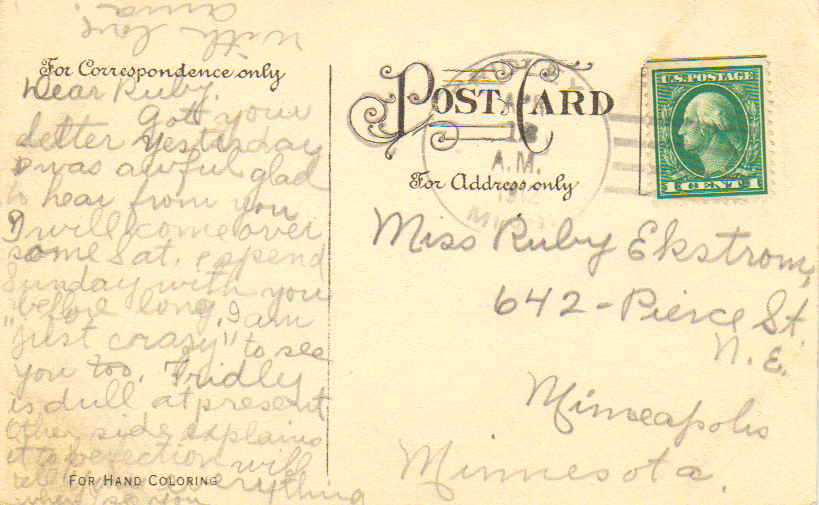 For Correspondence only
Dear Ruby,
Gott your
letter yesterday
I was awful glad
to hear from you
I will come over
some Sat. & spend
Sunday with you
before long, I am
"just crazy" to see
you too. Fridly
is dull at present
Other side explains
it to perfection will
everything
when see you
With love
Anna.
FOR HAND COLORING
POST CARD
For Address only
A.M.
U.S. POSTAGE
1 CENT 1
Miss Ruby Ekstrom,
642-Pierce St.
N.E.
Minneapolis
Minnesota.